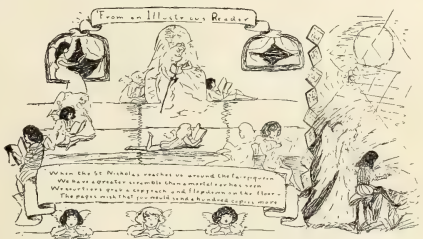 From an Illustrious Reader
When the St Nicholas reaches us around the fairy queen
We have a greater scramble than a mortal ear has seen
We courtiers grab a approach and flip down on the floor
The pages wish that you would send a hundred copies more